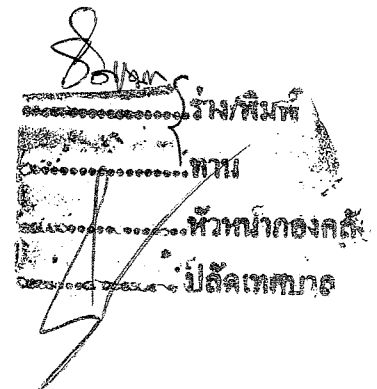 ร่าง/พิมพ์
ทาน
หัวหน้ากองคลัง
ปลัดเทศบาล